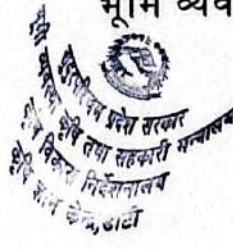 भूमि व्यव
सुदूरपश्चिम प्रदेश सरकार
भूमि व्यवस्था कृषि तथा सहकारी मन्त्रालय
कृषि विकास निर्देशनालय
कृषि ज्ञान केन्द्र, डोटी